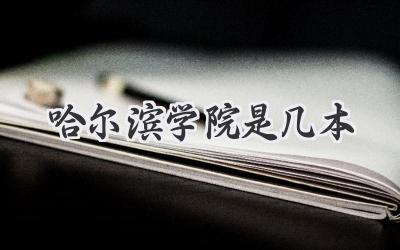 哈尔滨学院是几本